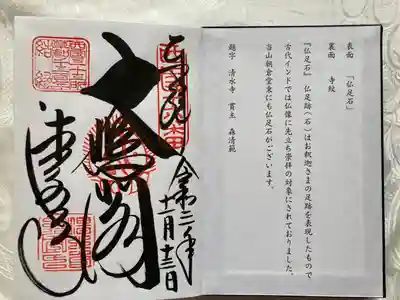 表面 「仏足石」
裏面 寺紋
『仏足石』 仏足跡(石)はお釈迦さまの足跡を表現したもので
古代インドでは仏像に先立ち崇拝の対象にされておりました。
当山朝倉堂東にも仏足石がございます。
題字 清水寺 貫主 森清範
令和三年
十一月十三日
大悲閣
清水寺